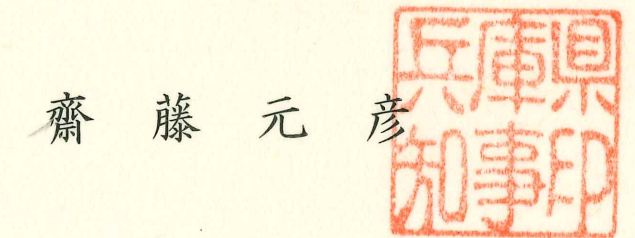 齋藤元彦
兵庫県
知事印